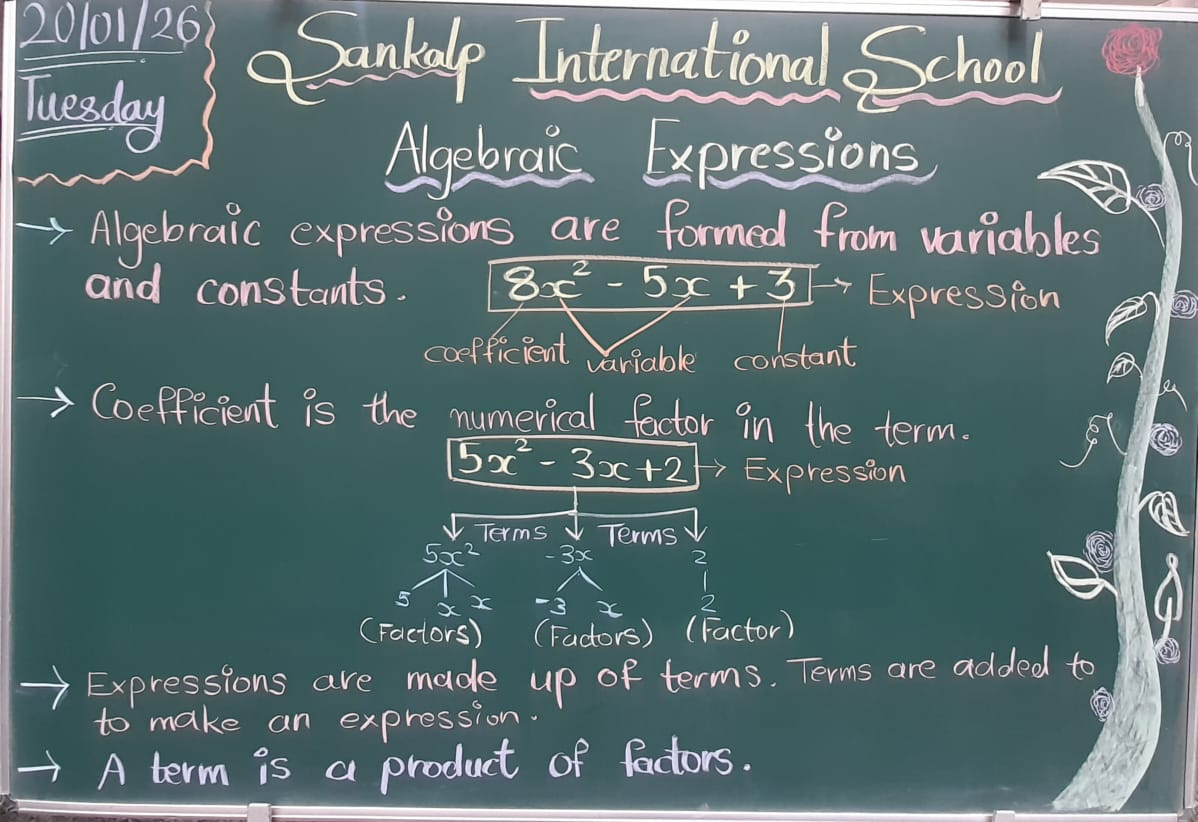 20/01/26
Tuesday
Sankalp International School
Algebraic Expressions
→ Algebraic expressions are formed from variables
and constants.
8x² - 5x + 3 → Expression
coefficient variable constant
→ Coefficient is the numerical factor in the term.
5x² - 3x + 2 → Expression
Terms Terms
5x² -3x 2
5 x x -3 x 2
(Factors) (Factors) (Factor)
→ Expressions are made up of terms. Terms are added to
to make an expression.
→ A term is a product of factors.